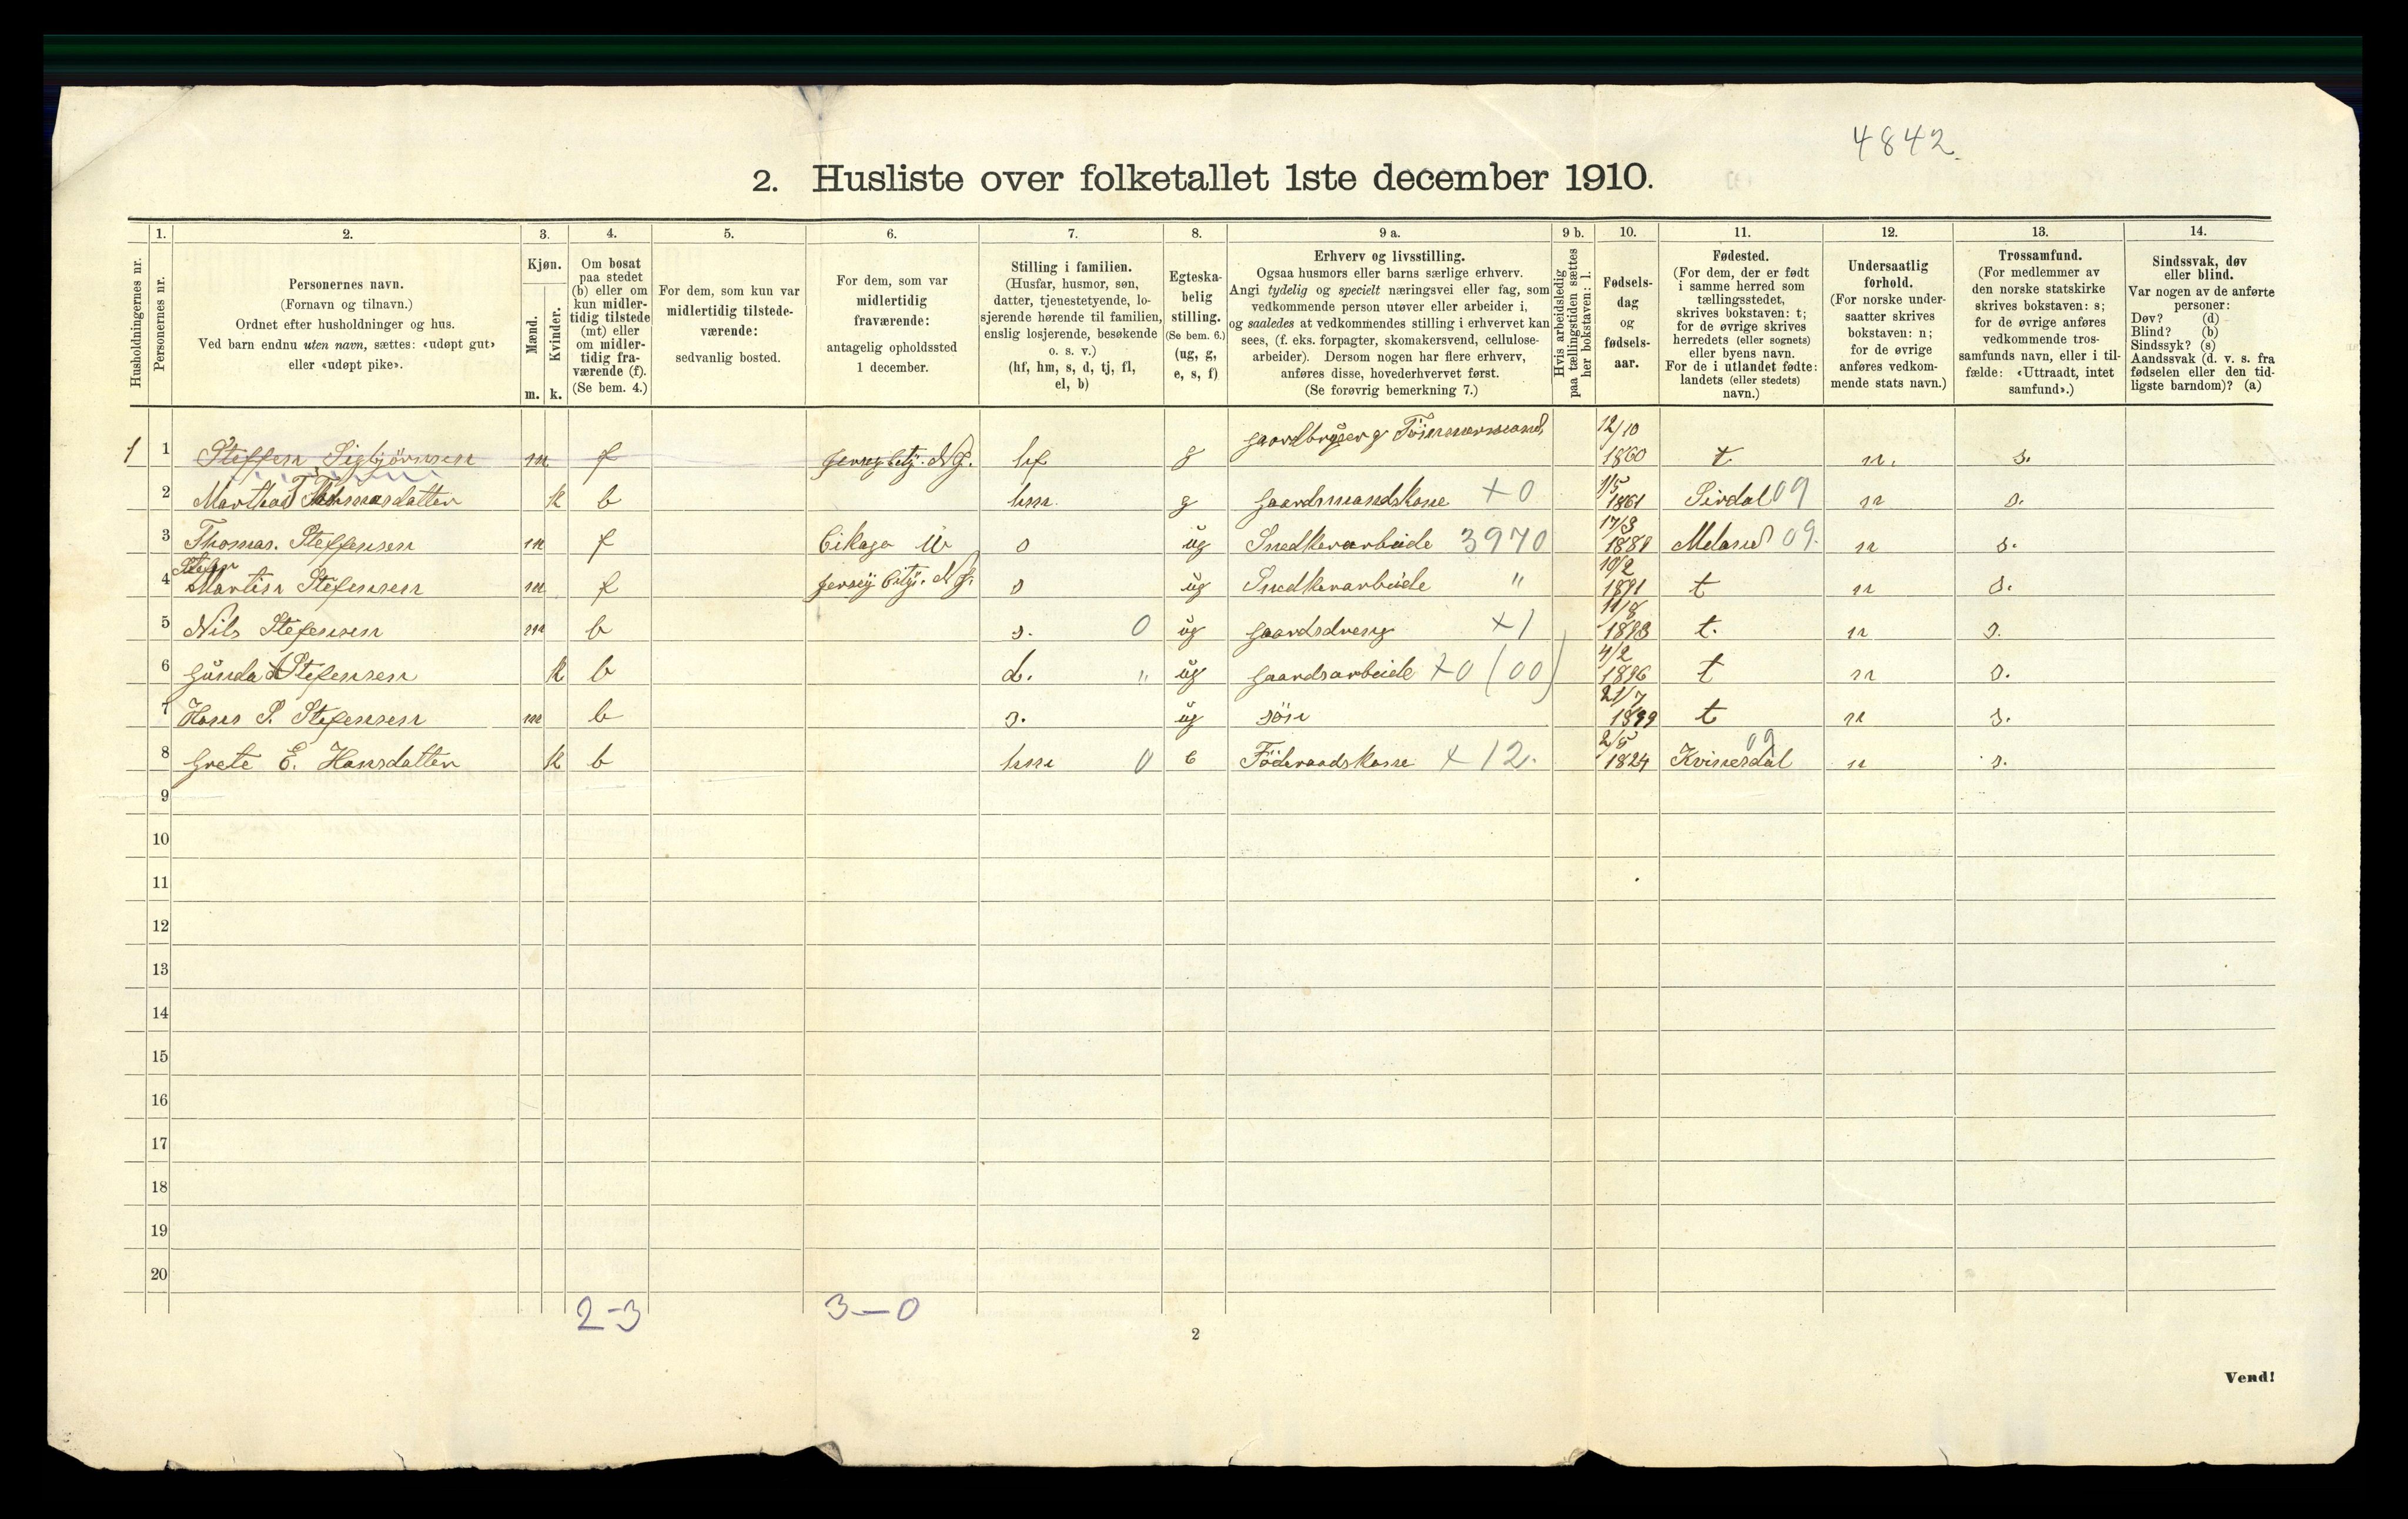 4842.
2. Husliste over folketallet 1ste december 1910.
Husholdningernes nr.
1.
Personernes nr.
2.
Personernes navn.
(Fornavn og tilnavn.)
Ordnet efter husholdninger og hus.
Ved barn endnu uten navn, sættes: «udøpt gut»
eller «udøpt pike».
3.
Kjøn.
Mænd.
Kvinder.
m. k.
4.
Om bosat
paa stedet
(b) eller om
kun midler-
tidig tilstede
(mt) eller
om midler-
tidig fra-
værende (f).
(Se bem. 4.)
5.
For dem, som kun var
midlertidig tilstede-
værende:
sedvanlig bosted.
6.
For dem, som var
midlertidig
fraværende:
antagelig opholdssted
1 december.
7.
Stilling i familien.
(Husfar, husmor, søn,
datter, tjenestetyende, lo-
sjerende hørende til familien,
enslig losjerende, besøkende
o. s. v.)
(hf, hm, s, d, tj, fl,
el, b)
8.
Egteska-
belig
stilling.
(Se bem. 6.)
(ug, g,
e, s, f)
9 a.
Erhverv og livsstilling.
Ogsaa husmors eller barns særlige erhverv.
Angi tydelig og specielt næringsvei eller fag, som
vedkommende person utøver eller arbeider i,
og saaledes at vedkommendes stilling i erhvervet kan
sees, (f. eks. forpagter, skomakersvend, cellulose-
arbeider). Dersom nogen har flere erhverv,
anføres disse, hovederhvervet først.
(Se forøvrig bemerkning 7.)
9 b.
Hvis arbeidsledig
paa tællingstiden sættes
her bokstaven: l.
10.
Fødsels-
dag
og
fødsels-
aar.
11.
Fødested.
(For dem, der er født
i samme herred som
tællingsstedet,
skrives bokstaven: t;
for de øvrige skrives
herredets (eller sognets)
eller byens navn.
For de i utlandet fødte:
landets (eller stedets)
navn.)
12.
Undersaatlig
forhold.
(For norske under-
saatter skrives
bokstaven: n;
for de øvrige
anføres vedkom-
mende stats navn.)
13.
Trossamfund.
(For medlemmer av
den norske statskirke
skrives bokstaven: s;
for de øvrige anføres
vedkommende tros-
samfunds navn, eller i til-
fælde: «Uttraadt, intet
samfund».)
14.
Sindssvak, døv
eller blind.
Var nogen av de anførte
personer:
Døv? (d)
Blind? (b)
Sindssyk? (s)
Aandssvak (d. v. s. fra
fødselen eller den tid-
ligste barndom)? (a)
1 1 Steffen Sigbjörnsen m f Jersey City. N J. hf g Gaardbruger g Tömmermand 12/10 1860 t n. s.
2 Martha T datter k b hm. g Gaardmandskone +0 1/5 1861 Sirdal 09 n s.
3 Thomas. Steffensen m f Cikago s ug Snedkerarbeide 3970 17/3 Meland 09. n s.
4 Stefen Martin Stefensen m f Jersey City. N J. s ug Snedkerarbeide " 10/2 1891 t n s.
5 Nils Stefensen m b s. 0 ug Gaardsdreng +1 11/8 1893 t. n s.
6 Gunda Stefensen k b d. " ug Gaardsarbeide +0 (00) 4/2 1896 t n s.
7 Hans S. Stefensen m b s. ug sön 21/7 1899 t n s.
8 Grete E. Hansdatter k b hm 0 e Föderaadskone +12. 2/5 1824 Kvinesdal 09 n s.
9
10
11
12
13
14
15
16
17
18
19
20
2-3 3-0
2
Vend!